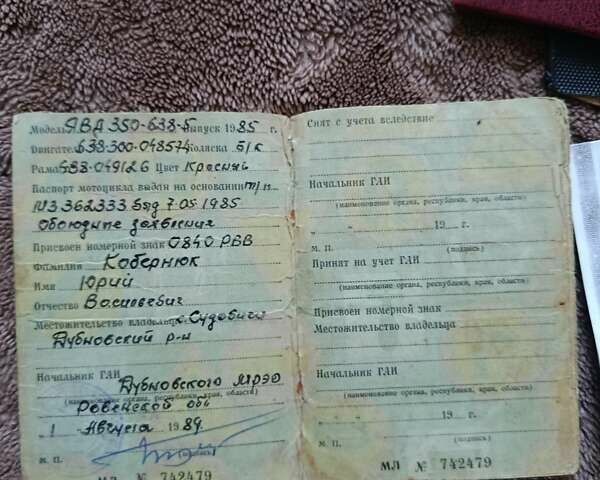 Модель ЯВА 350-638-5 Выпуск 1985 г.
Двигатель 638-300-048574 Коляска б/к
Рама 638-049126 Цвет Красный
Паспорт мотоцикла выдан на основании т/п
362333 7.05 1985
Присвоен номерной знак 0840 РВВ
Фамилия Кобернюк
Имя Юрий
Отчество Васильевич
Местожительство владельца с. Судобичи
Дубновский р-н
Начальник ГАИ Дубновского МРЭО
(наименование органа, республики, края, области)
Ровенской обл
" 1 " Августа 1989.
М. П.
МЛ № 742479
Снят с учета вследствие
Начальник ГАИ
(наименование органа, республики, края, области)
" " 19 г.
М. П. (подпись)
Принят на учет ГАИ
(наименование органа, республики, края, области)
Присвоен номерной знак
Местожительство владельца
Начальник ГАИ
(наименование органа, республики, края, области)
" " 19 г.
М. П. (подпись)
МЛ № 742479